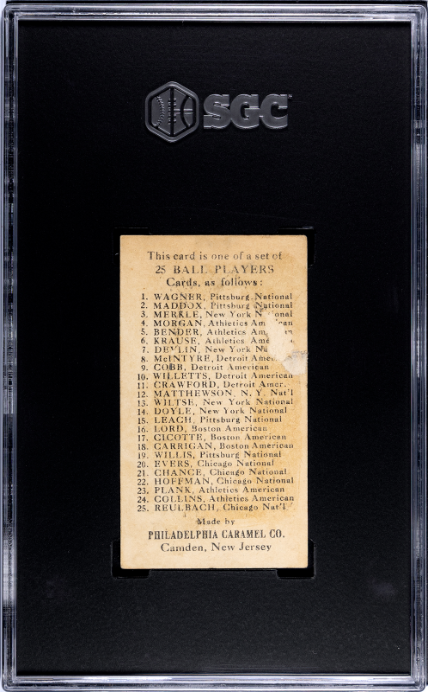 SGC
This card is one of a set of
25 BALL PLAYERS
Cards, as follows:
1. WAGNER, Pittsburg National
2. MADDOX, Pittsburg National
3. MERKLE, New York N onal
4. MORGAN, Athletics Am can
5. BENDER, Athletics Am an
6. KRAUSE, Athletics Ame
7. DEVLIN, New York Na
8. McINTYRE, Detroit Ame
9. COBB, Detroit American
10. WILLETTS, Detroit American
11. CRAWFORD, Detroit Amer.
12. MATTHEWSON, N. Y. Nat'l
13. WILTSE, New York National
14. DOYLE, New York National
15. LEACH, Pittsburg National
16. LORD, Boston American
17. CICOTTE, Boston American
18. CARRIGAN, Boston American
19. WILLIS, Pittsburg National
20. EVERS, Chicago National
21. CHANCE, Chicago National
22. HOFFMAN, Chicago National
23. PLANK, Athletics American
24. COLLINS, Athletics American
25. REULBACH, Chicago Nat'l
Made by
PHILADELPHIA CARAMEL CO.
Camden, New Jersey